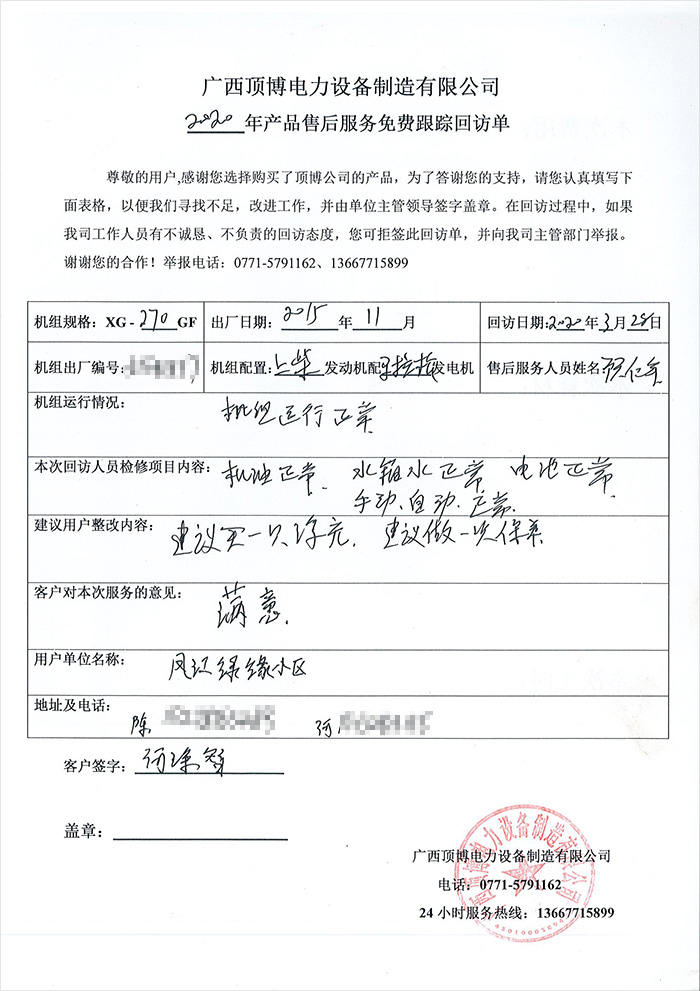 广西顶博电力设备制造有限公司
2020年产品售后服务免费跟踪回访单
尊敬的用户,感谢您选择购买了顶博公司的产品，为了答谢您的支持，请您认真填写下
面表格，以便我们寻找不足，改进工作，并由单位主管领导签字盖章。在回访过程中，如果
我司工作人员有不诚恳、不负责的回访态度，您可拒签此回访单，并向我司主管部门举报。
谢谢您的合作！举报电话：0771-5791162、13667715899
机组规格：XG-270GF 出厂日期：2015年11月 回访日期:2020年3月28日
机组出厂编号: 机组配置:上柴发动机配 发电机 售后服务人员姓名
机组运行情况： 机组运行正常
本次回访人员检修项目内容： 机油正常. 水箱水正常 电池正常
手动、自动、正常.
建议用户整改内容： 建议买一只浮充. 建议做一次保养
客户对本次服务的意见： 满意.
用户单位名称： 凤江绿缘小区
地址及电话：
陈 何
客户签字：何
盖章：
广西顶博电力设备制造有限公司
电话：0771-5791162
24小时服务热线：13667715899